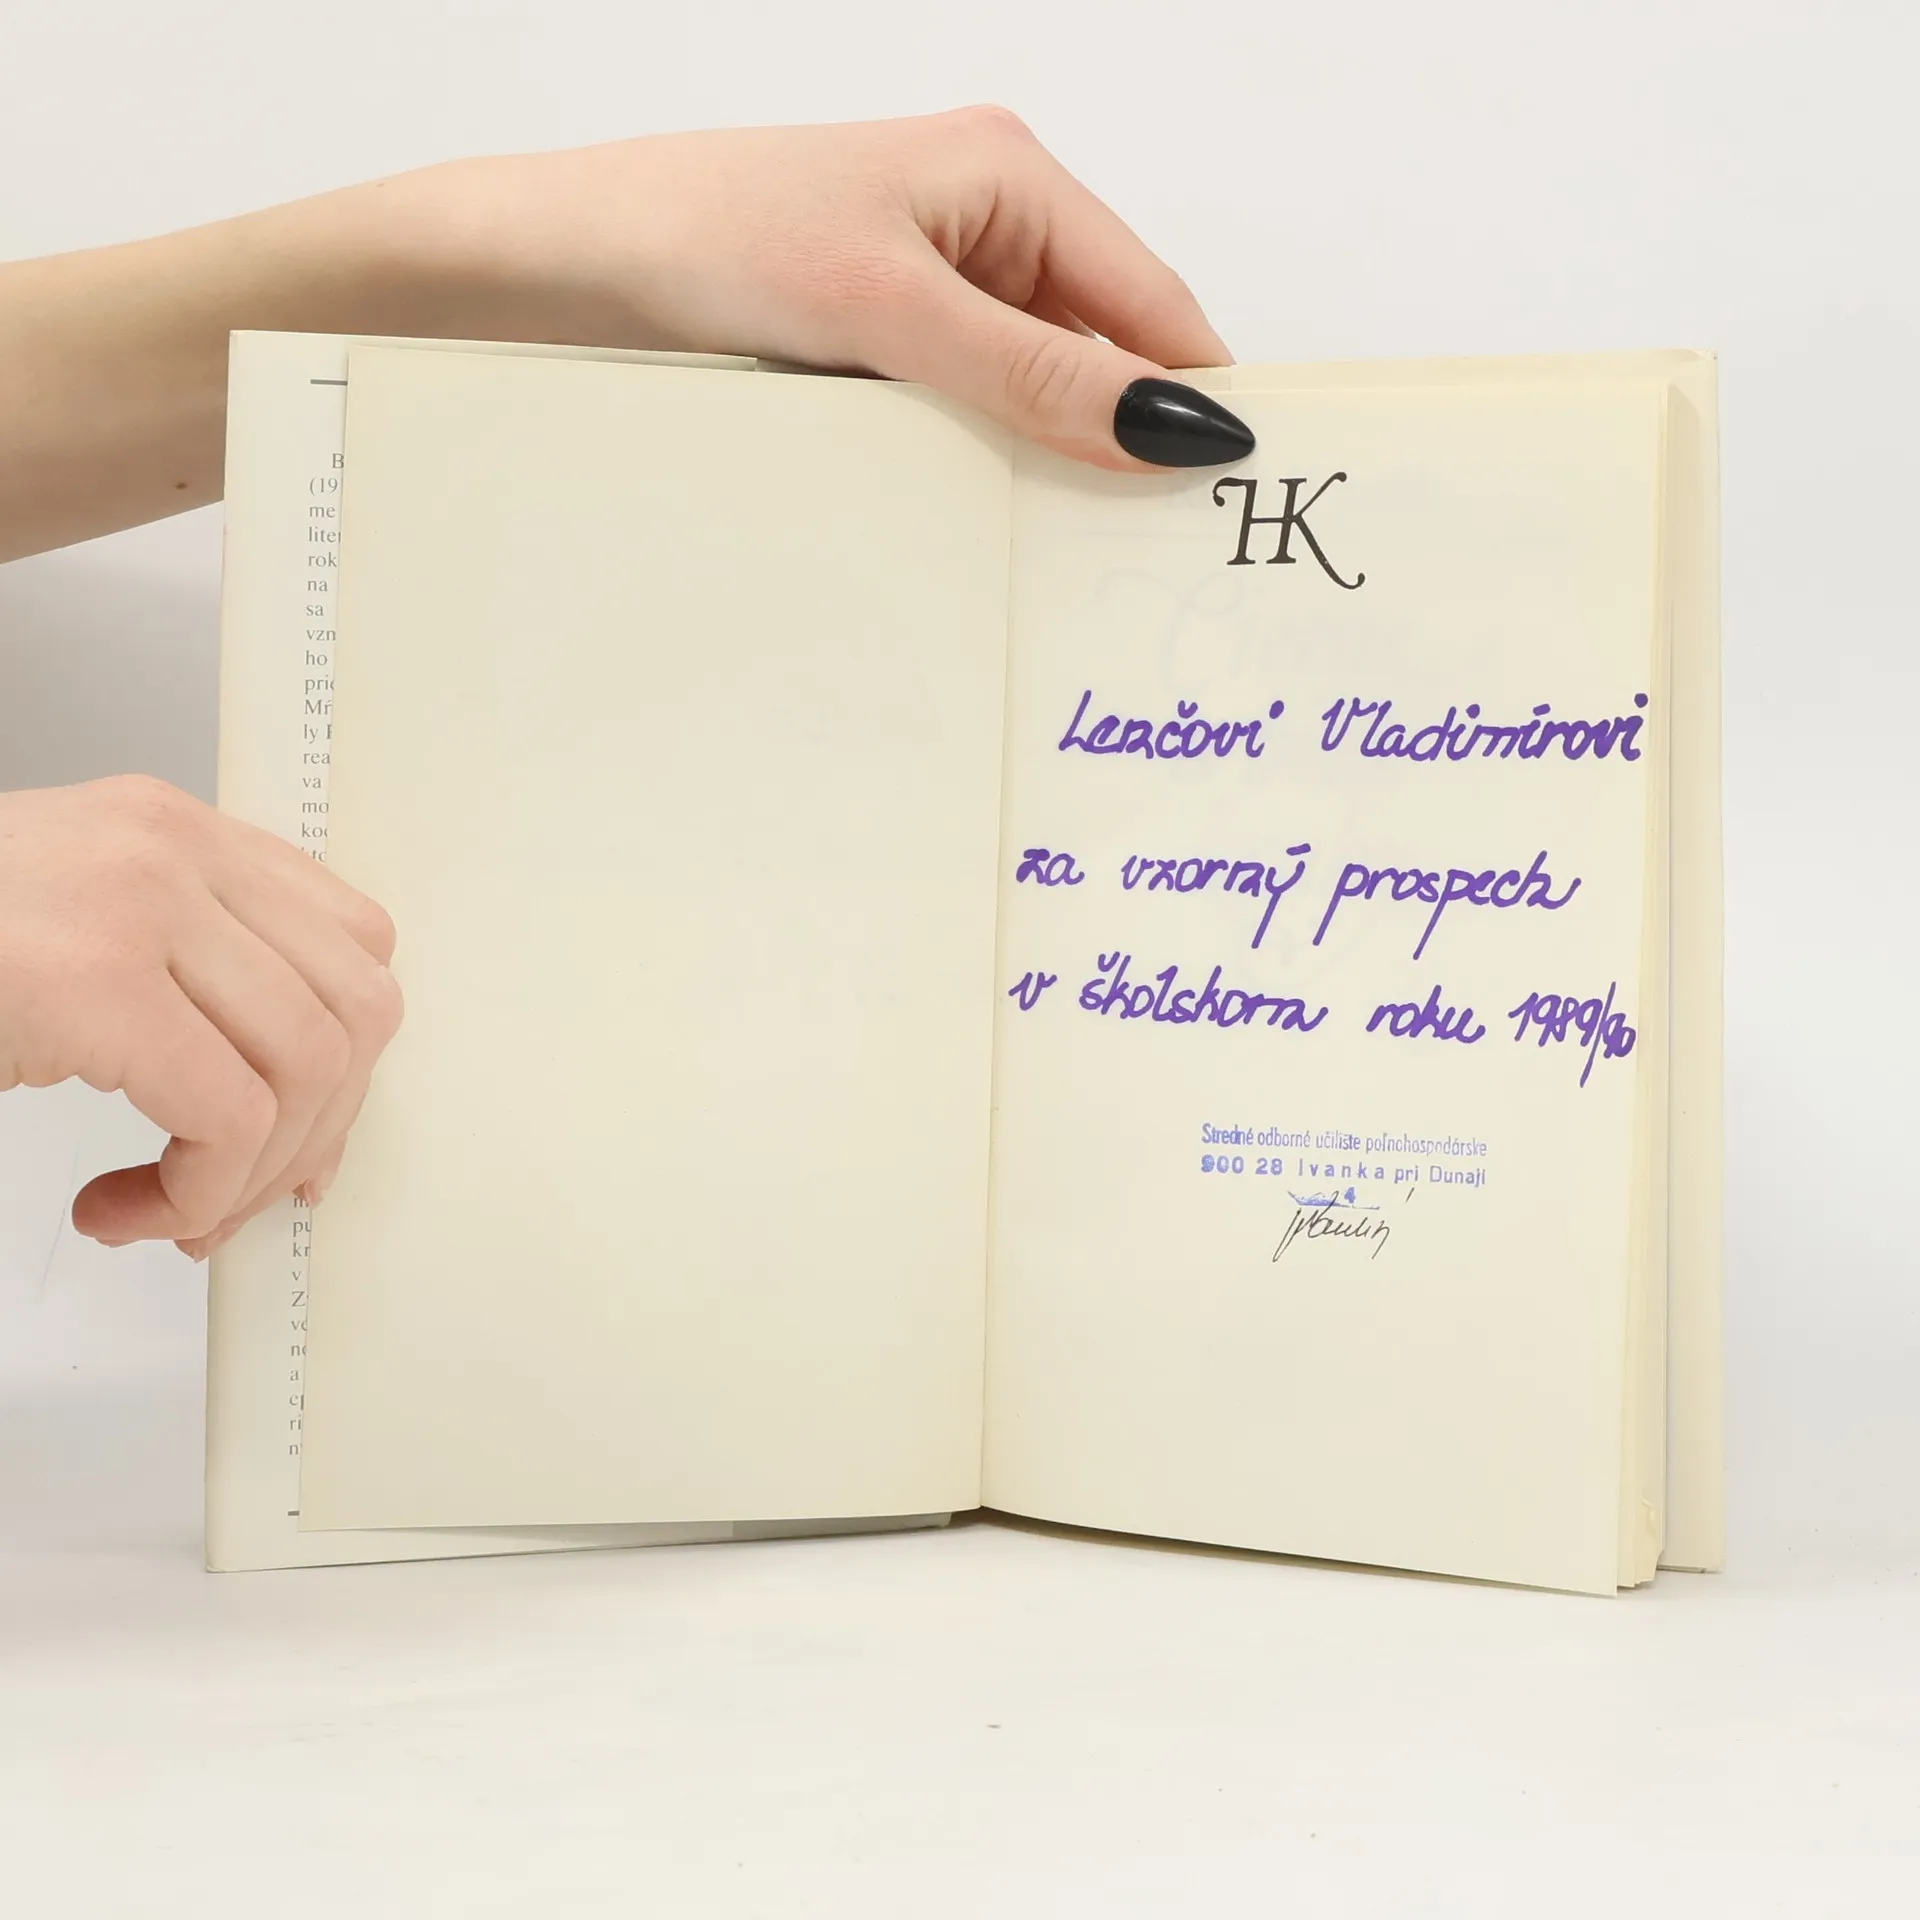 B
(19
me
lite
rok
na
sa
vzn
ho
prí
Mŕ
ly
rea
va
mo
ko
pu
kr
v
Z
ve
ne
a
ep
ri
HK
Lenčovi Vladimírovi
za vzorný prospech
v školskom roku 1989/90
Stredné odborné učilište poľnohospodárske
900 28 Ivanka pri Dunaji
4